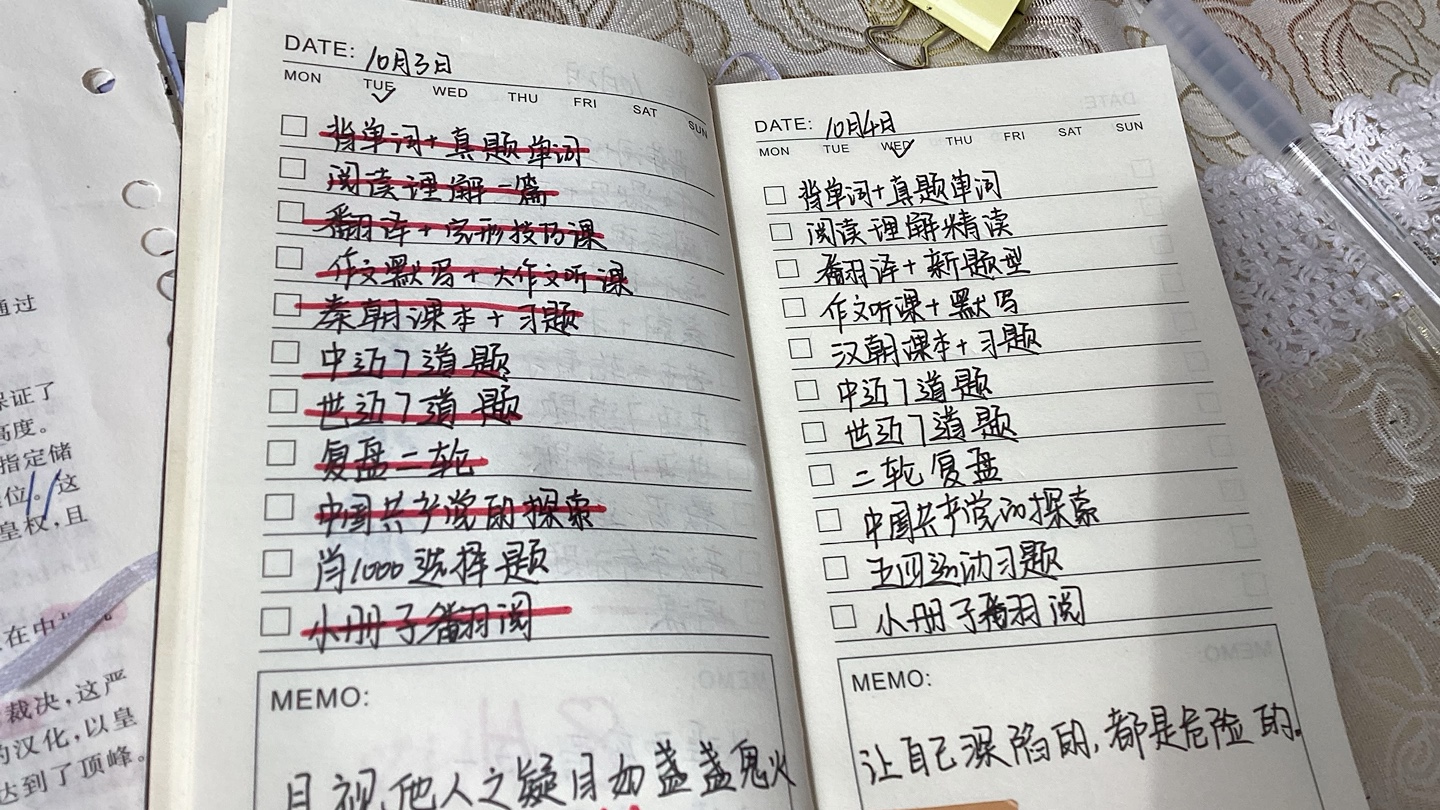 通过
保证了
高度。
指定储
位。这
皇权，且
在中
裁决，这严
的汉化，以皇
达到了顶峰。
DATE: 10月3日
MON TUE WED THU FRI SAT SUN
背单词+真题单词
阅读理解一篇
翻译+完形技巧课
作文默写+大作文听课
秦朝课本+习题
中近7道题
世近7道题
复盘二轮
中国共产党的探索
肖1000选择题
小册子翻阅
MEMO:
目视他人之疑目如盏盏鬼火
DATE: 10月4日
MON TUE WED THU FRI SAT SUN
背单词+真题单词
阅读理解精读
翻译+新题型
作文听课+默写
汉朝课本+习题
中近7道题
世近7道题
二轮复盘
中国共产党的探索
五四运动习题
小册子翻阅
MEMO:
让自己深陷的，都是危险的。